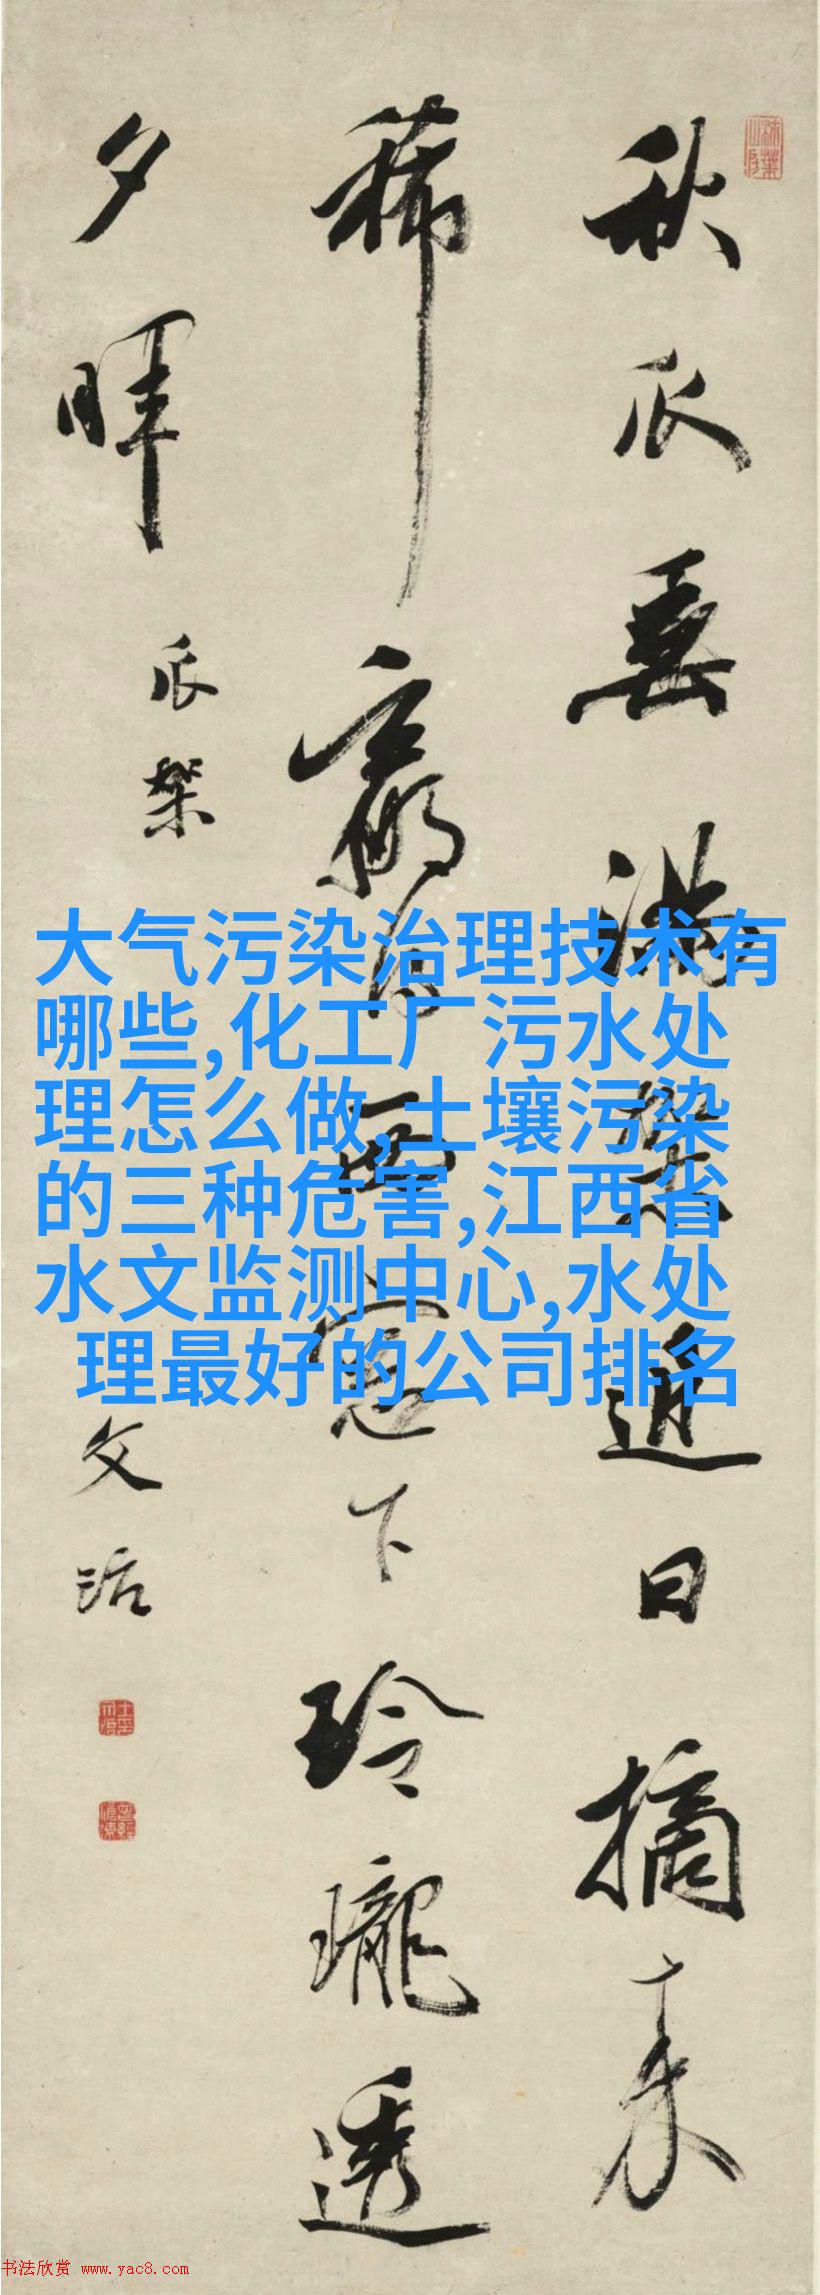 秋瓜垂滿架日摘来
稀贏得西窓下玲瓏透
夕暉
瓜架
文治
大气污染治理技术有
哪些,化工厂污水处
理怎么做,土壤污染
的三种危害,江西省
水文监测中心,水处
理最好的公司排名
书法欣赏 www.yac8.com